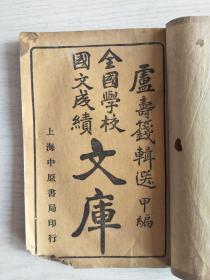 盧壽籛輯選 甲編
全國學校
國文成績
文庫
上海中原書局印行